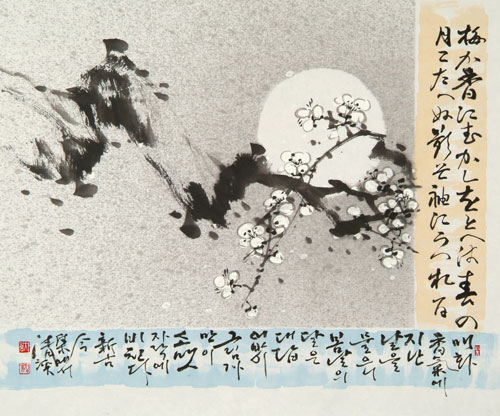 梅か香にむかしをとへは春の
月こたへぬ影そ袖にうつれる
매화
香氣에
지난
날을
물으니
봄날의
달은
대답
없이
그림자
만이
소맷
자락에
비친다
新古
今